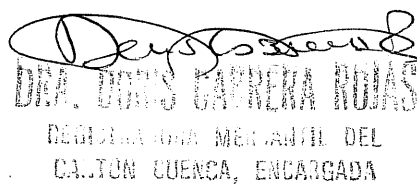 DRA. DORIS CABRERA ROJAS
REGISTRADORA MERCANTIL DEL
CANTON CUENCA, ENCARGADA